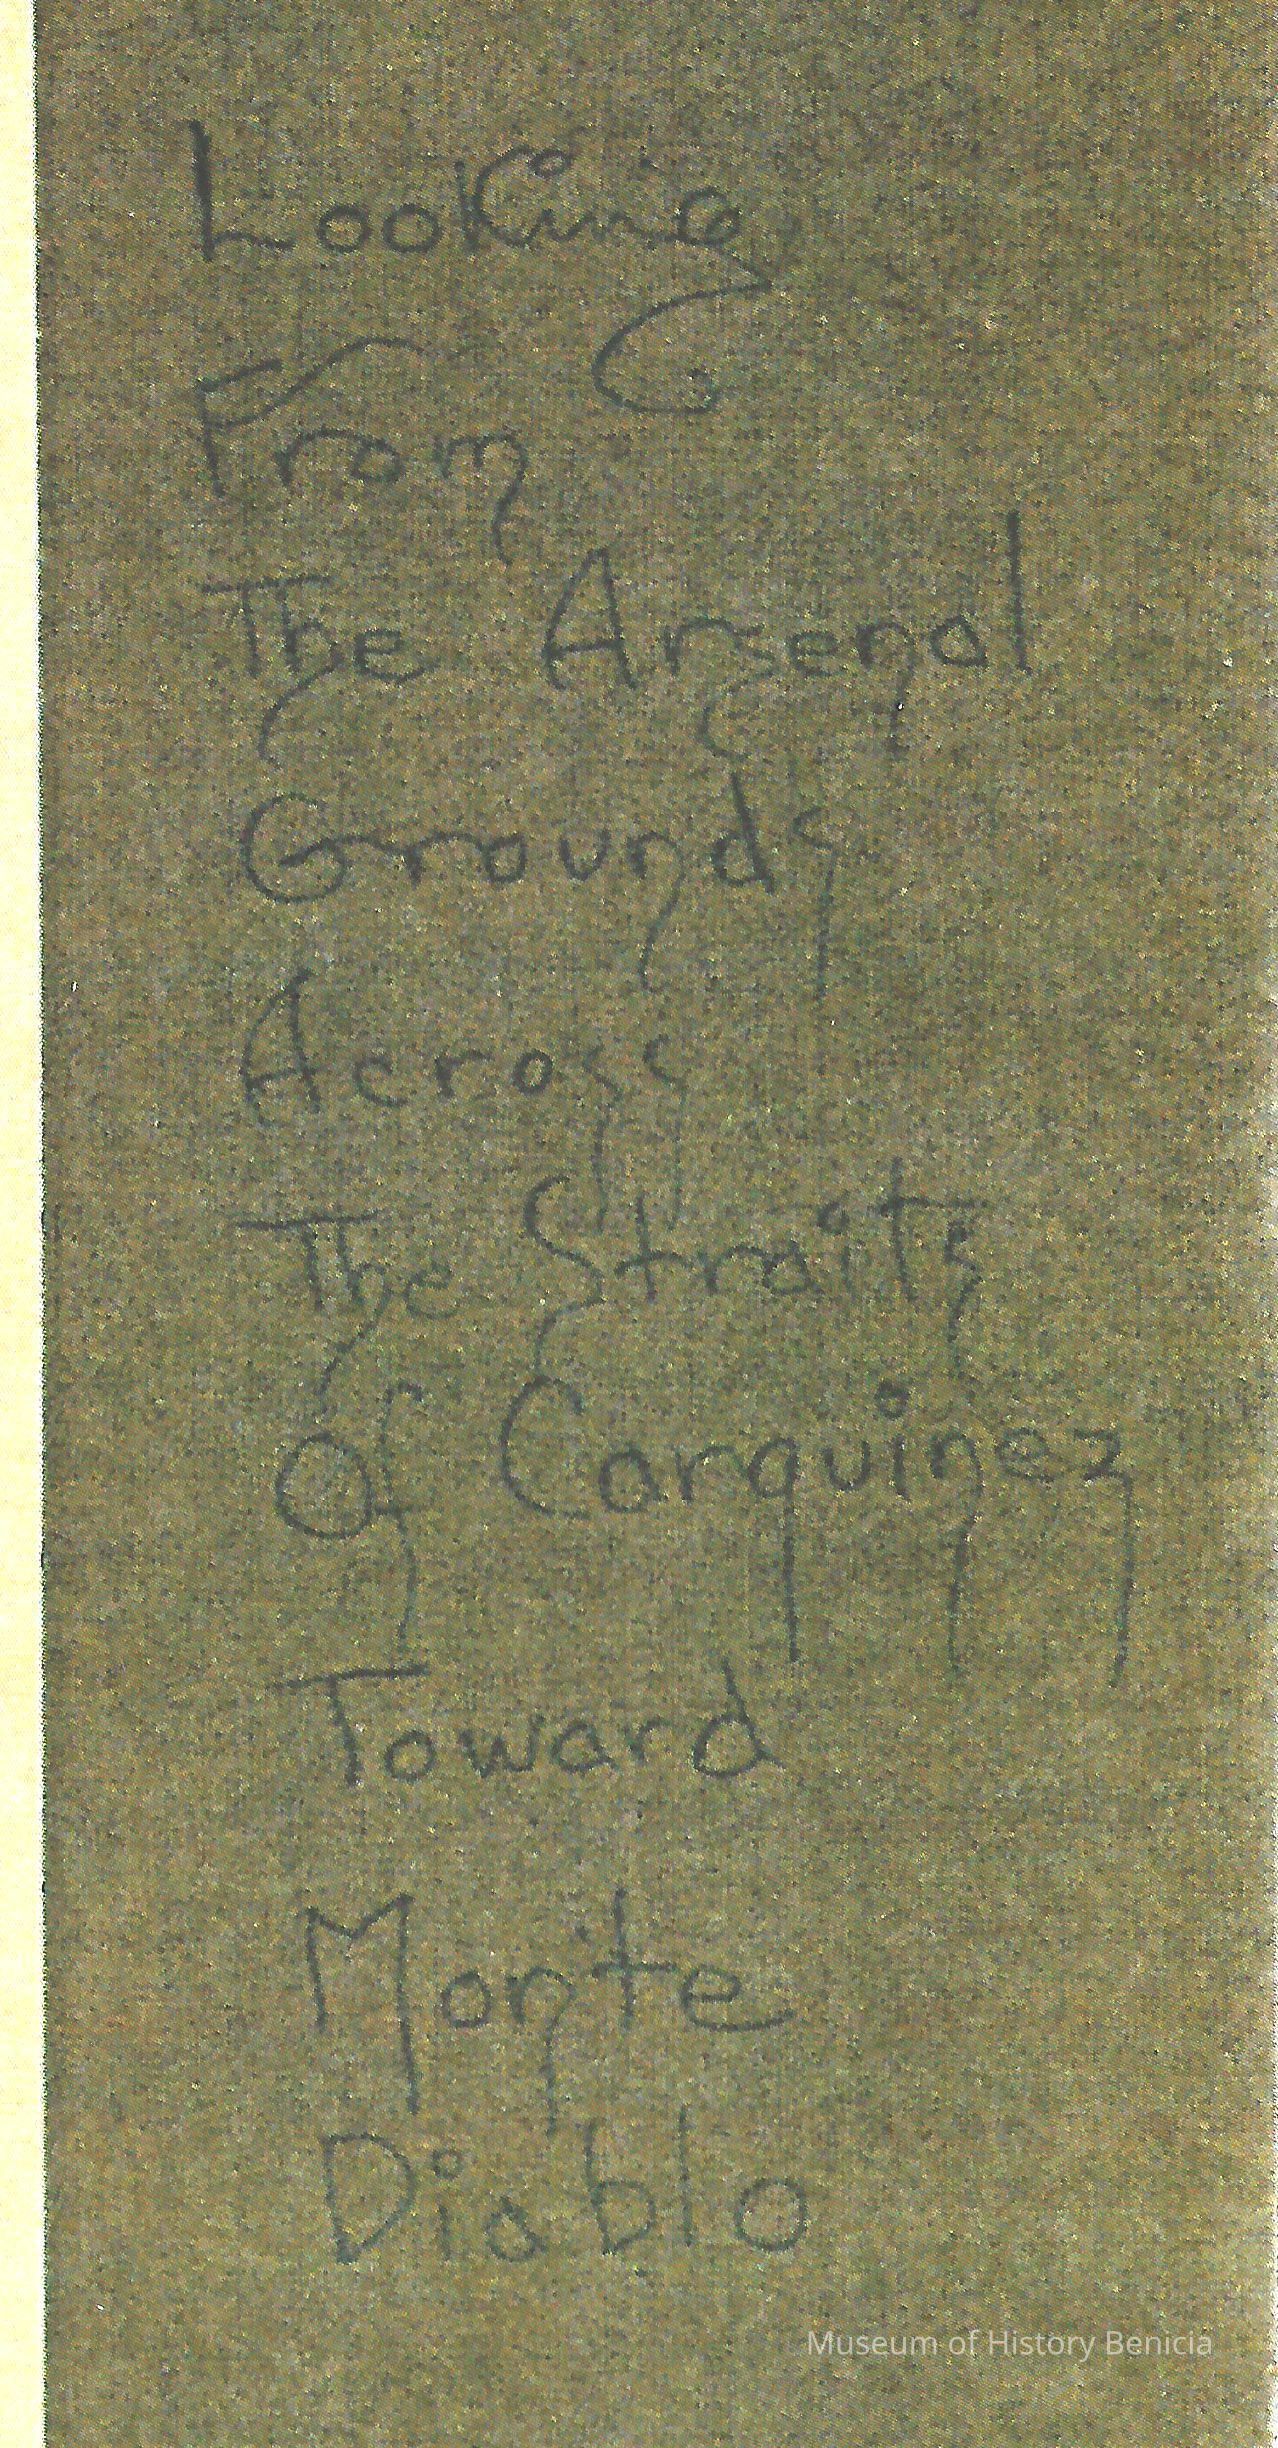 Looking
From
The Arsenal
Grounds
Across
The Straits
Of Carquinez
Toward
Monte
Diablo
Museum of History Benicia